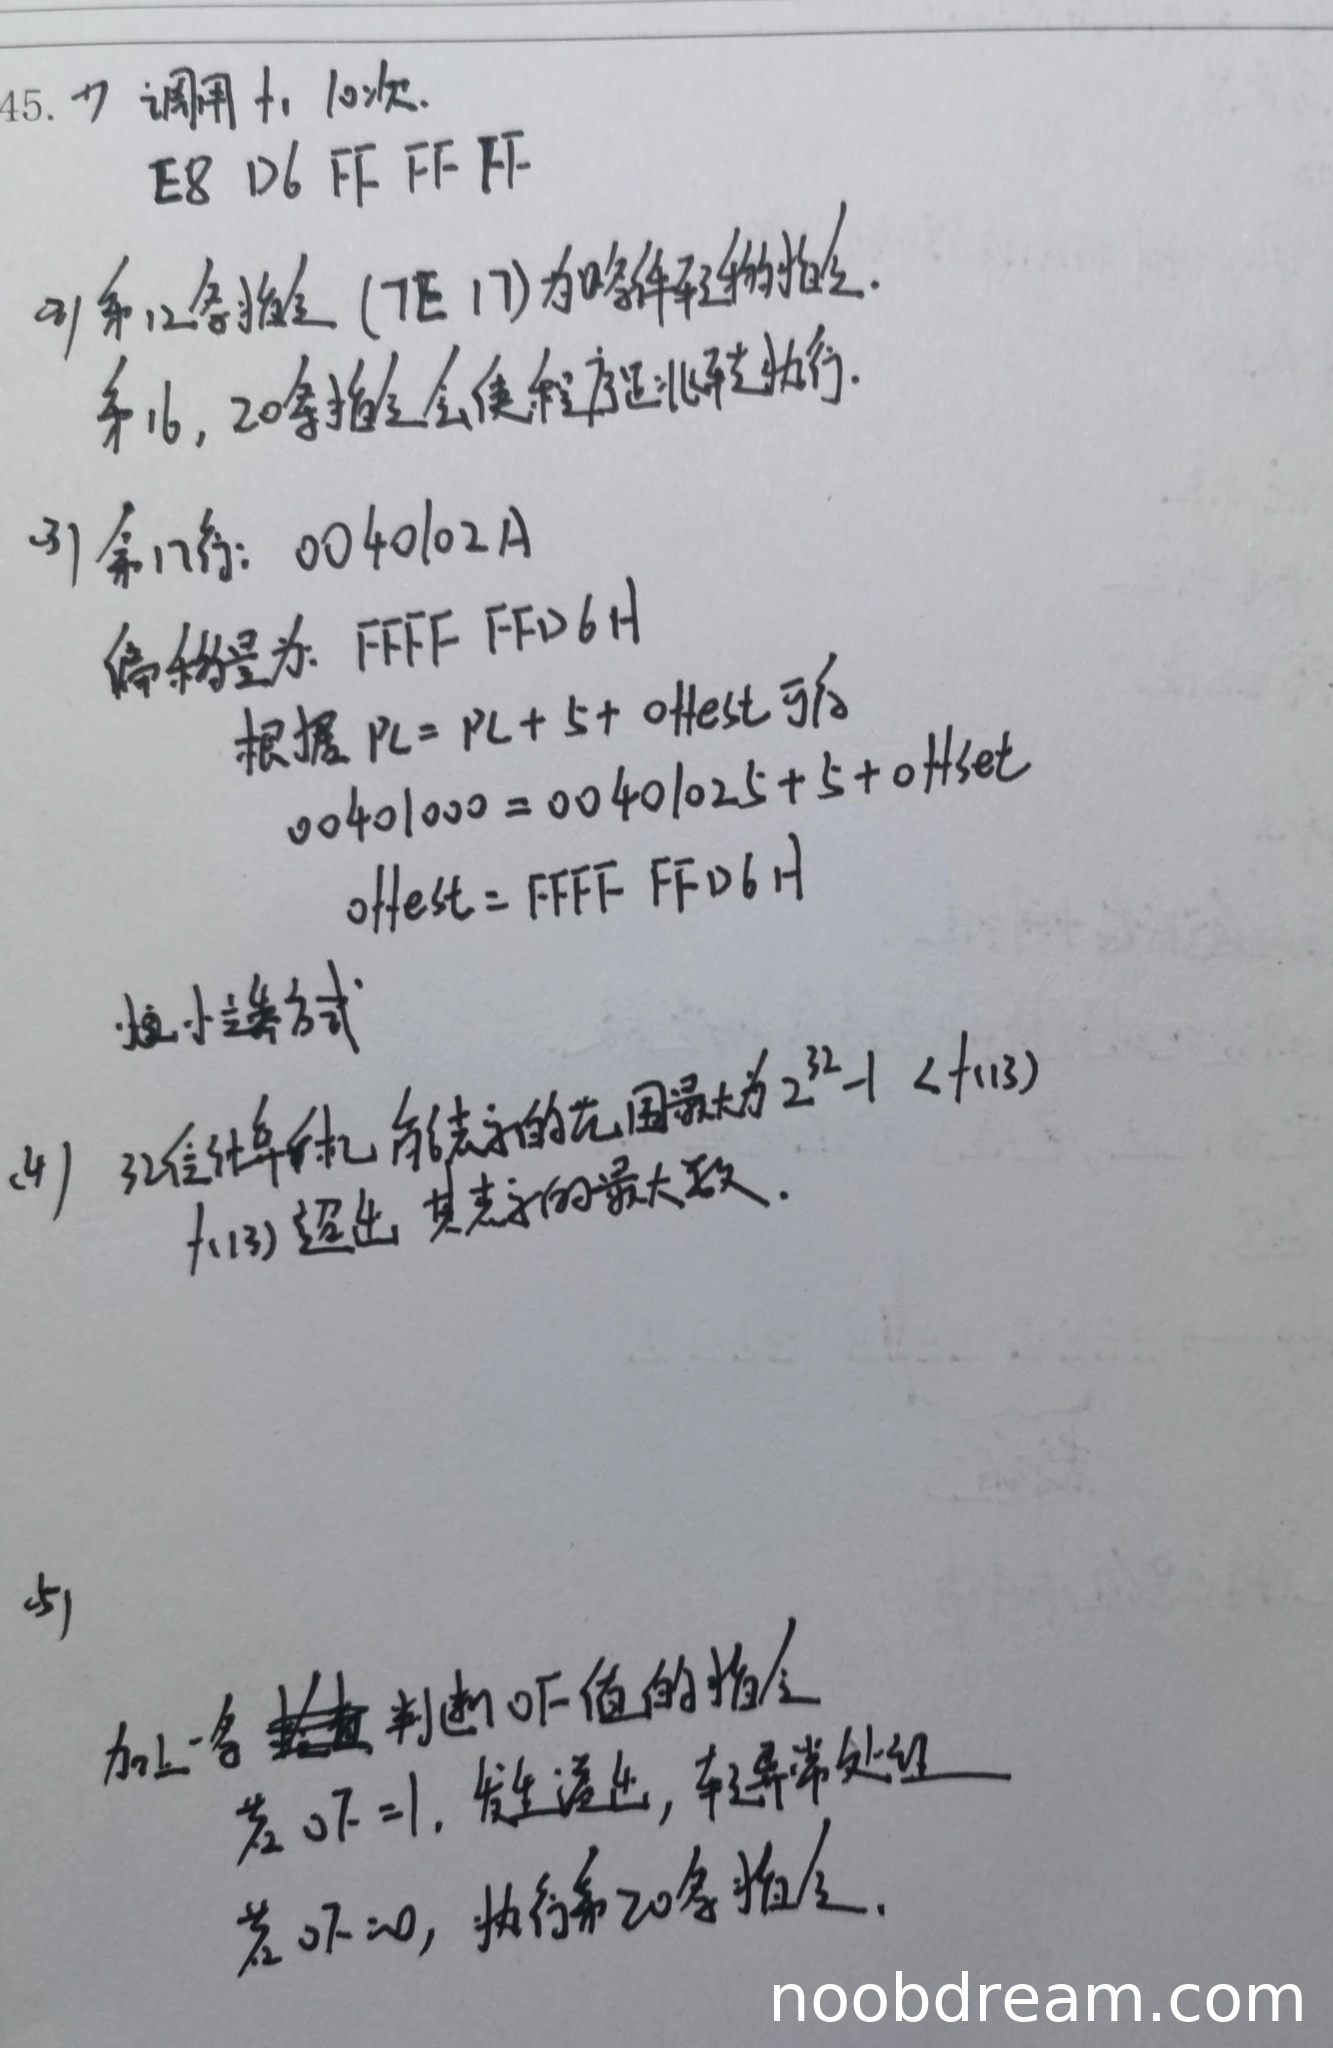 45. (1) 调用 f1 10次.
E8 D6 FF FF FF
(2) 第12条指令 (7E 17) 为条件转移指令.
第16, 20条指令会使程序跳转执行.
(3) 第17行: 0040102A
偏移量为: FFFF FFD6H
根据 PC = PC + 5 + offest 可得
00401000 = 00401025 + 5 + offset
offest = FFFF FFD6H
小方式
(4) 32位计算机能表示的范围最大为 2^32-1 < f(13)
f(13) 超出其表示的最大数.
(5)
加上一条 判断OF值的指令
若 OF = 1. 发生溢出, 转异常处理
若 OF = 0, 执行第20条指令.
noobdream.com